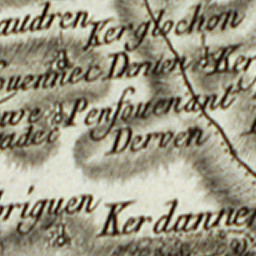 audren
Kerglochon
ouennec Dorien Ker
we Pensouenant
adec
Derven
briguen
Kerdanner